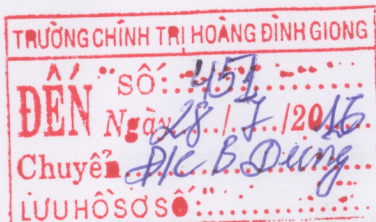 TRƯỜNG CHÍNH TRỊ HOÀNG ĐÌNH GIONG
ĐẾN SỐ: 451
Ngày 28 / 7 /2015
Chuyển Đ/c B Dung
LƯU HỒ SƠ SỐ